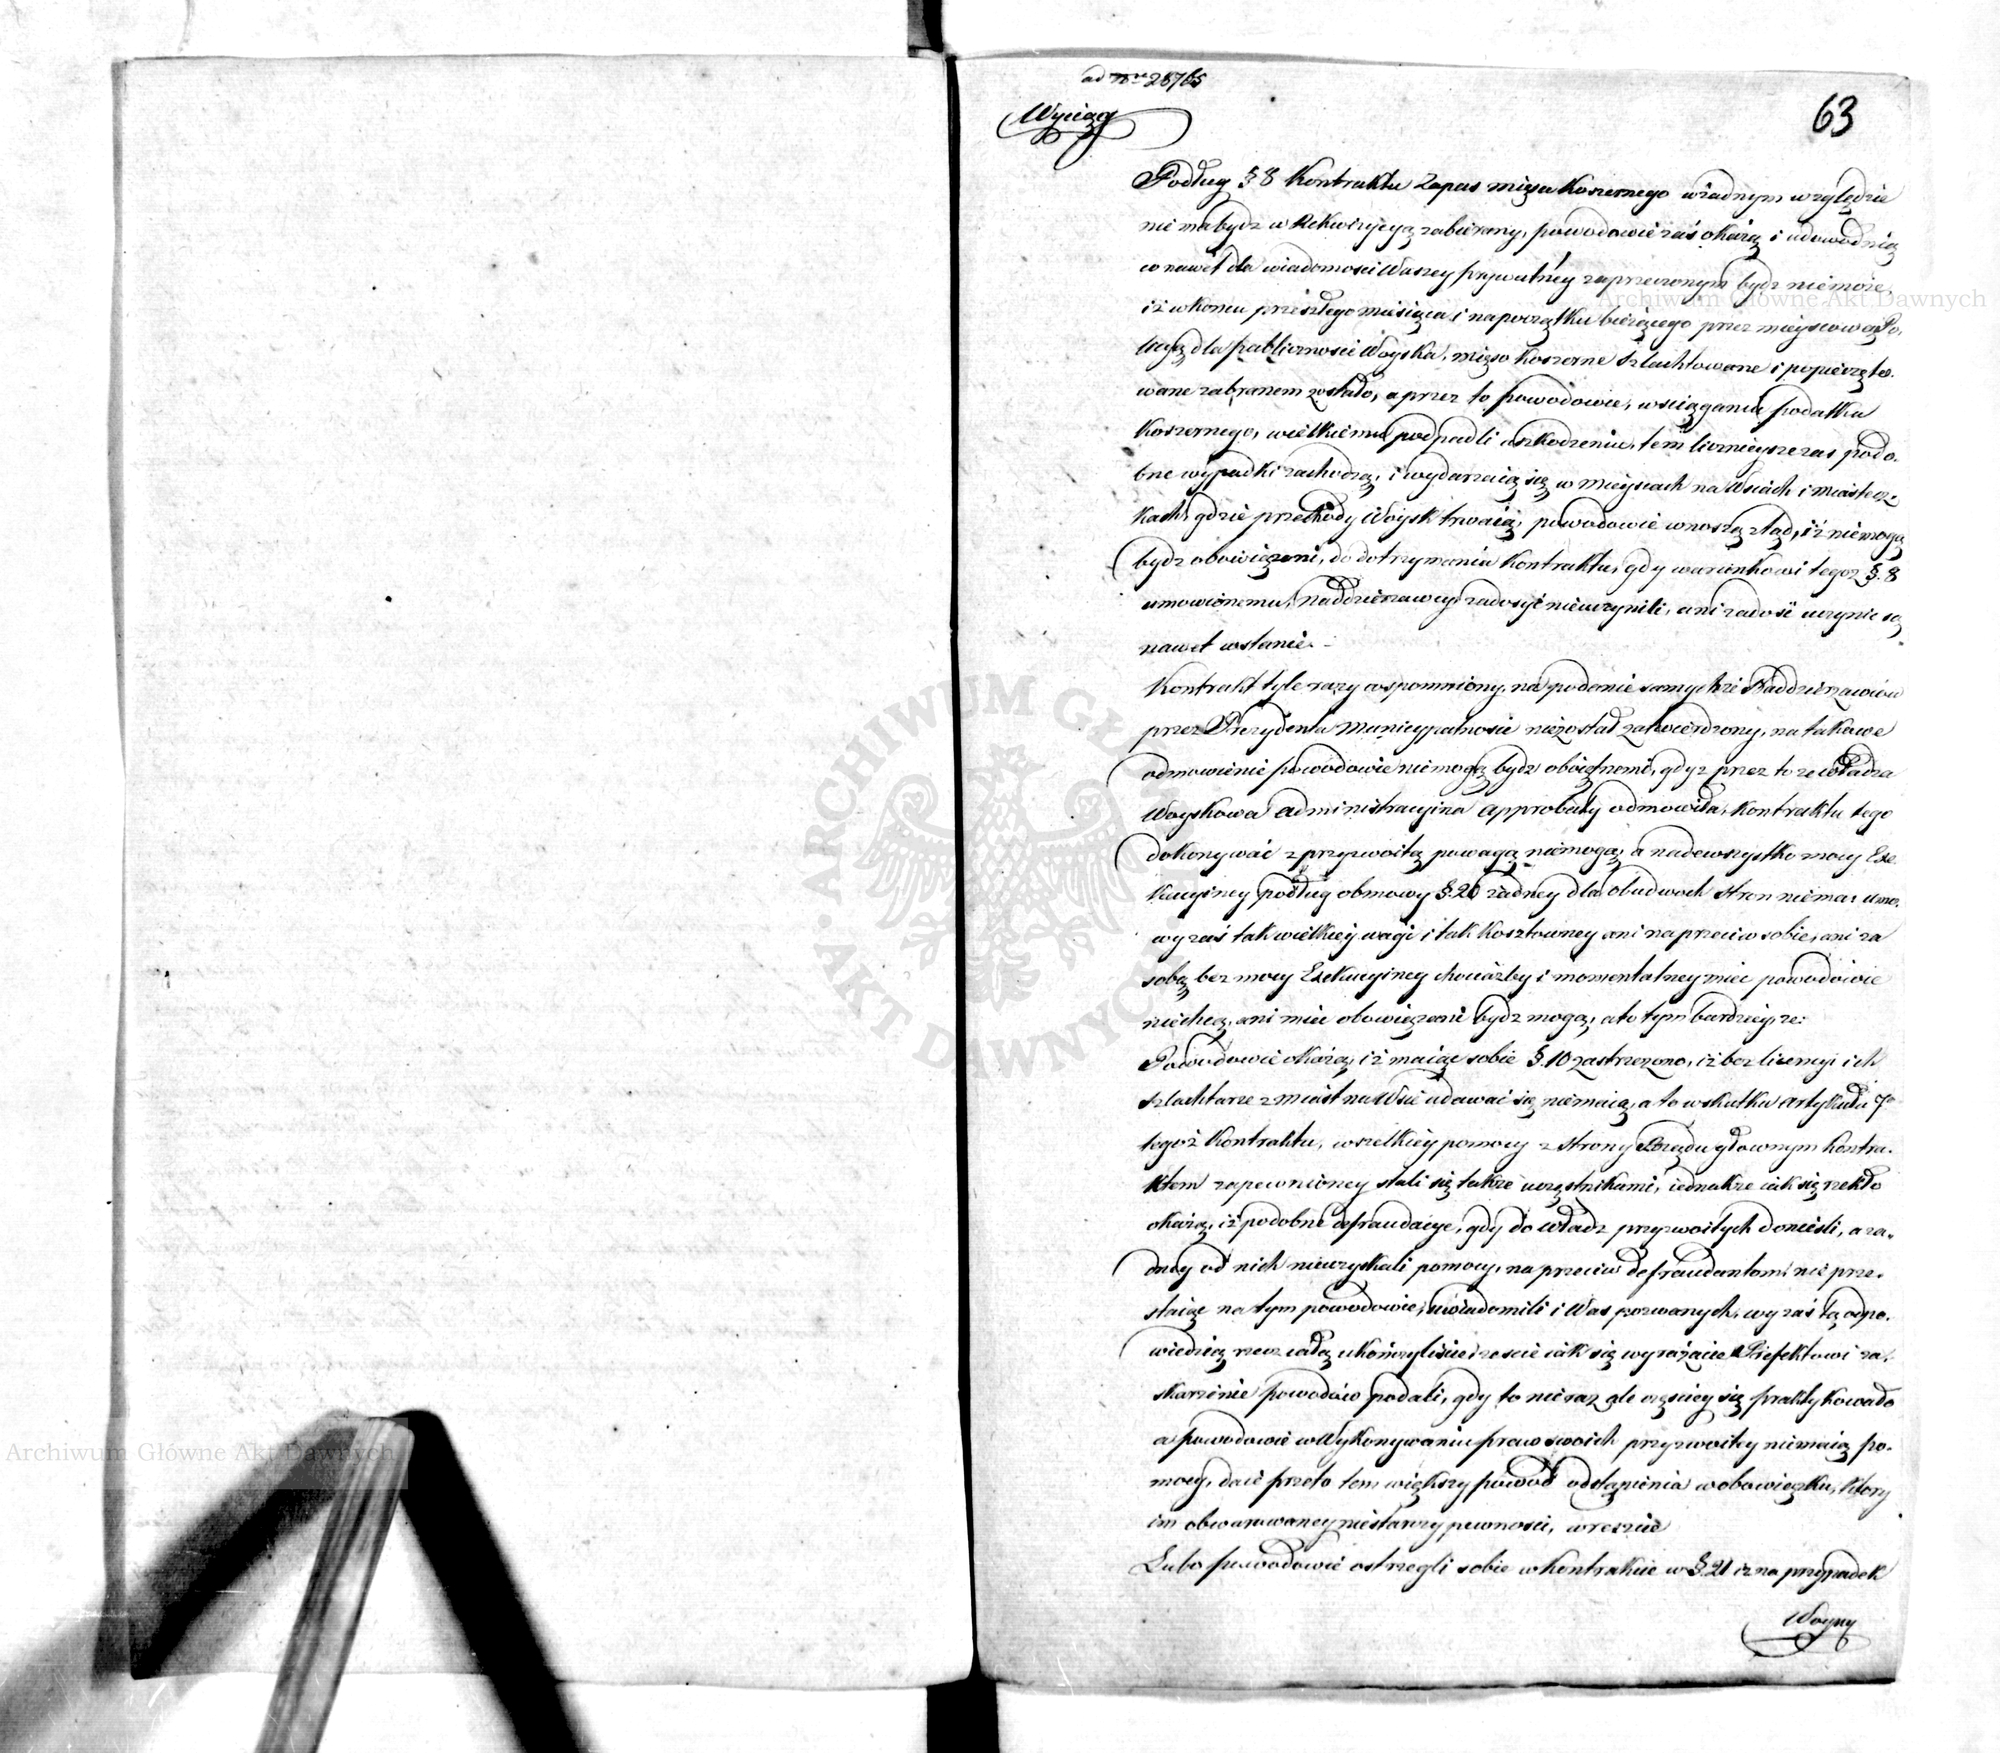 ad Nrum 28765
Wyciąg
63
Podług § 8 Kontraktu Zapas mięsa Koszernego w żadnym względzie
nie ma bydz w Rekwizycyą zabierany, powodowie zaś okażą i udowodnią
co nawet dla wiadomosci Waszey prywatney zaprzeczonym bydz nie może,
iż w koncu przeszłego miesiąca i na początku bieżącego przez mieyscową Po,
licyą dla publicznosci Woyska, mięso Koszerne szlachtowane i popieczęto,
wane zabranem zostało, a przez to powodowie, w sciąganiu podatku
Koszernego, wielkiemu podpadli uszkodzeniu, tem licznieysze zas podo,
bne wypadki zachodzą, i wydarzaią się w mieyscach na Wsiach i miastecz,
kach, gdzie przechody Woysk trwaią, powodowie wnoszą ztąd, iż niemogą
bydz obowiązani, do dotrzymania Kontraktu, gdy warunkowi tegoz §. 8
umowionemu, Naddzierzawcy zadosyć nieuczynili, ani zadosć uczynic są
nawet wstanie. -
Kontrakt tyle razy wspomniony, na podanie samychże Naddzierzawców
przez Prezydenta Municypalnosci niezostał zatwierdzony, na takowe
odmowienie powodowie niemogą bydz oboiętnemi, gdyz przez to ze władza
Woyskowa administracyina approbaty odmowiła, Kontraktu tego
dokonywać z przyzwoitą powagą niemogą, a nadewszystko mocy Exe,
kucyiney podług obmowy §. 20 żadney dla obudwoch stron niema, umo,
wy zaś tak wielkiey wagi i tak Kosztowney ani naprzeciw sobie, ani za
sobą bez mocy Exekucyiney chociażby i momentalney miec powodowie
niechcą, ani miec obowiązani bydz mogą, a to tym bardziey, ze:
Powodowie okażą, iż maiąc sobie §. 10 zastrzezono, iż bez licencyi ich
szlachtarze z miast na Wsie udawać się niemaią, a to w skutku artykułu 7o
tegoż Kontraktu, wszelkiey pomocy z strony Rządu głownym Kontra,
ktem zapewnioney stali się także uczęstnikami, iednakże iak się rzekło
okażą, iż podobne defraudacye, gdy do władz przyzwoitych doniesli, a ża,
dney od nich nieuzyskali pomocy, na przeciw defraudantom, nie prze,
staiąc na tym powodowie, uwiadomili i Was pozwanych, wy zaś tą odpo,
wiedzią rzecz całą ukończyliscie zescie iak się wyrażacie Prefektowi za,
skarzenie powodów podali, gdy to nieraz ale częsciey się praktykowało
a powodowie w Wykonywaniu praw swoich przyzwoitey niemaią po,
mocy, daie przeto tem większy powód odstąpienia w obowiązku, ktory
im obwarowaney niestarczy pewnosci, wreszcie
Lubo powodowie ostrzegli sobie w kontrakcie w §. 21 iż na przypadek
Woyny
Archiwum Główne Akt Dawnych
Archiwum Główne Akt Dawnych